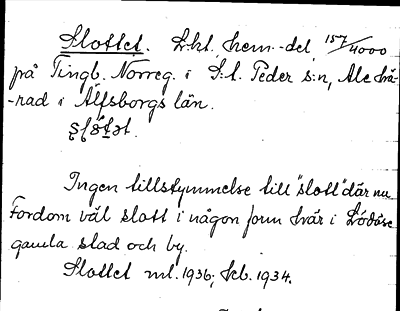 Slottet. Lht, hem.-del 157/4000
på Tingb. Norreg. i S:t Peder s:n, Ale hä-
-rad i Älfsborgs län.
Ingen tillstymmelse till "slott" där nu.
Fordom väl slott i någon form här i Lödöse
gamla stad och by.
Slottet ml. 1936; kb. 1934.